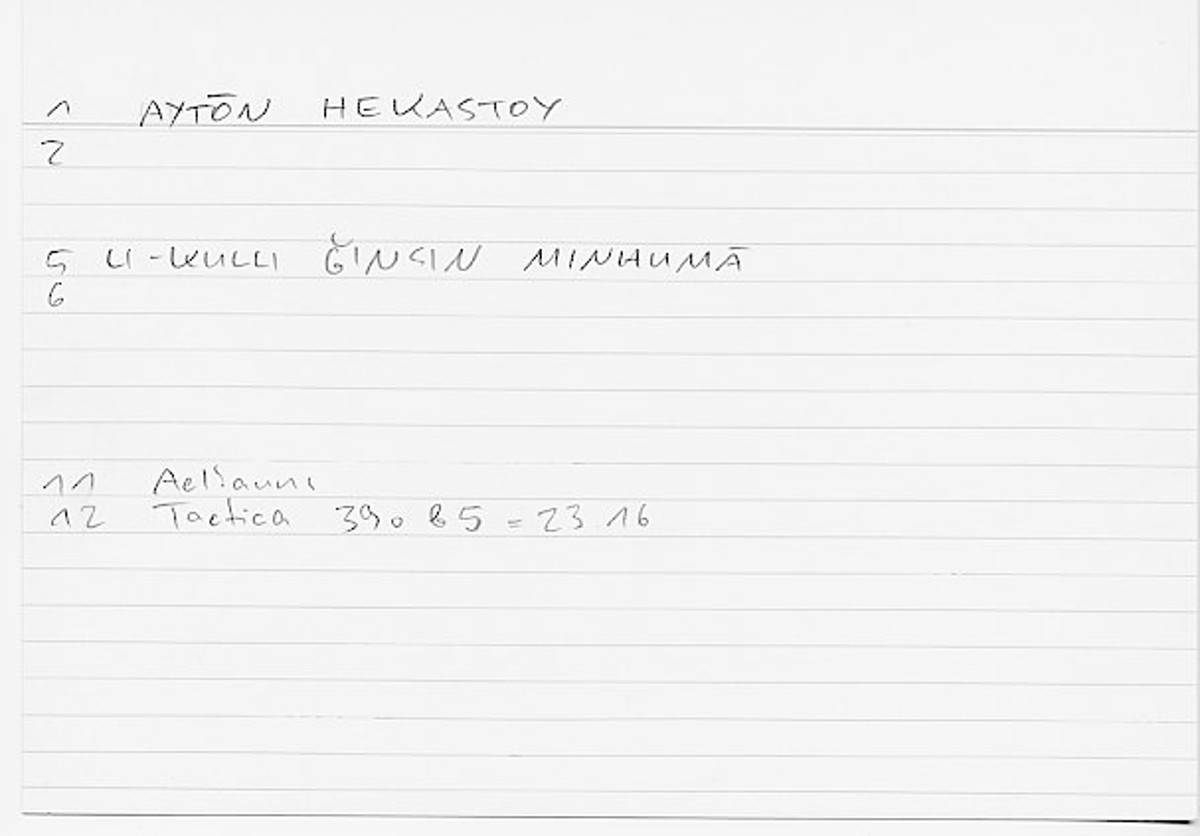 1 AYTŌN HEKASTOY
2
5 LI-KULLI ǦINSIN MINHUMĀ
6
11 Aeliani
12 Tactica 39. 65 = 23 16